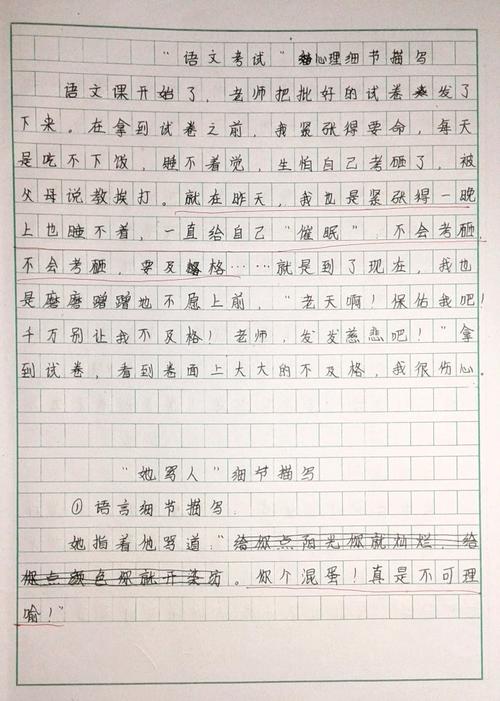 “语文考试”心理细节描写
语文课开始了，老师把批好的试卷发了
下来。在拿到试卷之前，我紧张得要命，每天
是吃不下饭，睡不着觉，生怕自己考砸了，被
父母说教挨打。就在昨天，我也是紧张得一晚
上也睡不着，一直给自己“催眠”，不会考砸，
不会考砸，要及格……就是到了现在，我也
是磨磨蹭蹭地不愿上前，“老天啊！保佑我吧！
千万别让我不及格！老师，发发慈悲吧！”拿
到试卷，看到卷面上大大的不及格，我很伤心。
“她骂人”细节描写
①语言细节描写.
她指着他骂道：“给你点阳光你就灿烂，给
你点颜色你就开染坊。你个混蛋！真是不可理
喻！”